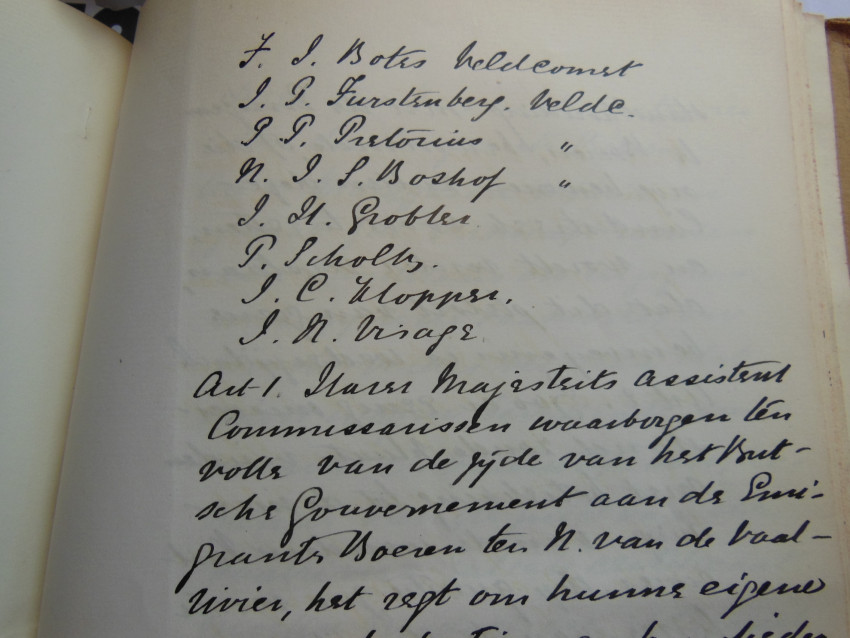 F. J. Botes Veldcornet
J. P. Furstenberg. Veldc.
P. P. Pretorius "
N. J. S. Boshof "
J. H. Grobler.
P. Scholtz.
J. C. Klopper.
J. N. Visage
Art 1. Harer Majesteits Assistent
Commissarissen waarborgen ten
volle van de zijde van het Brit-
sche Gouvernement aan de Emi-
grante Boeren ten N. van de Vaal-
rivier, het regt om hunne eigene